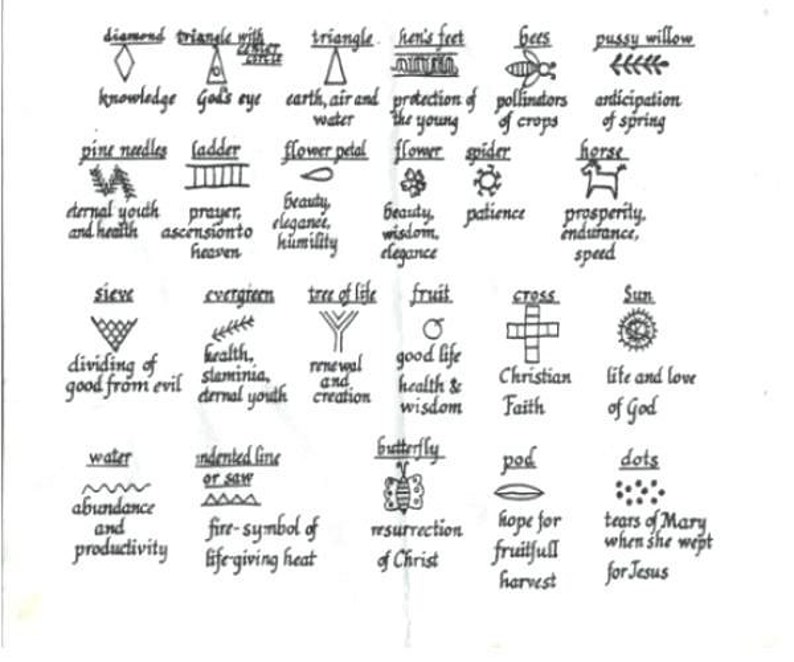 diamond
triangle with
center
circle
triangle
hen's feet
bees
pussy willow
knowledge
God's eye
earth, air and
water
protection of
the young
pollinators
of crops
anticipation
of spring
pine needles
ladder
flower petal
flower
spider
horse
eternal youth
and health
prayer,
ascension to
heaven
beauty,
elegance,
humility
beauty,
wisdom,
elegance
patience
prosperity,
endurance,
speed
sieve
evergreen
tree of life
fruit
cross
Sun
dividing of
good from evil
health,
staminia,
eternal youth
renewal
and
creation
good life
health &
wisdom
Christian
Faith
life and love
of God
water
indented line
or saw
butterfly
pod
dots
abundance
and
productivity
fire-symbol of
life-giving heat
resurrection
of Christ
hope for
fruitfull
harvest
tears of Mary
when she wept
for Jesus